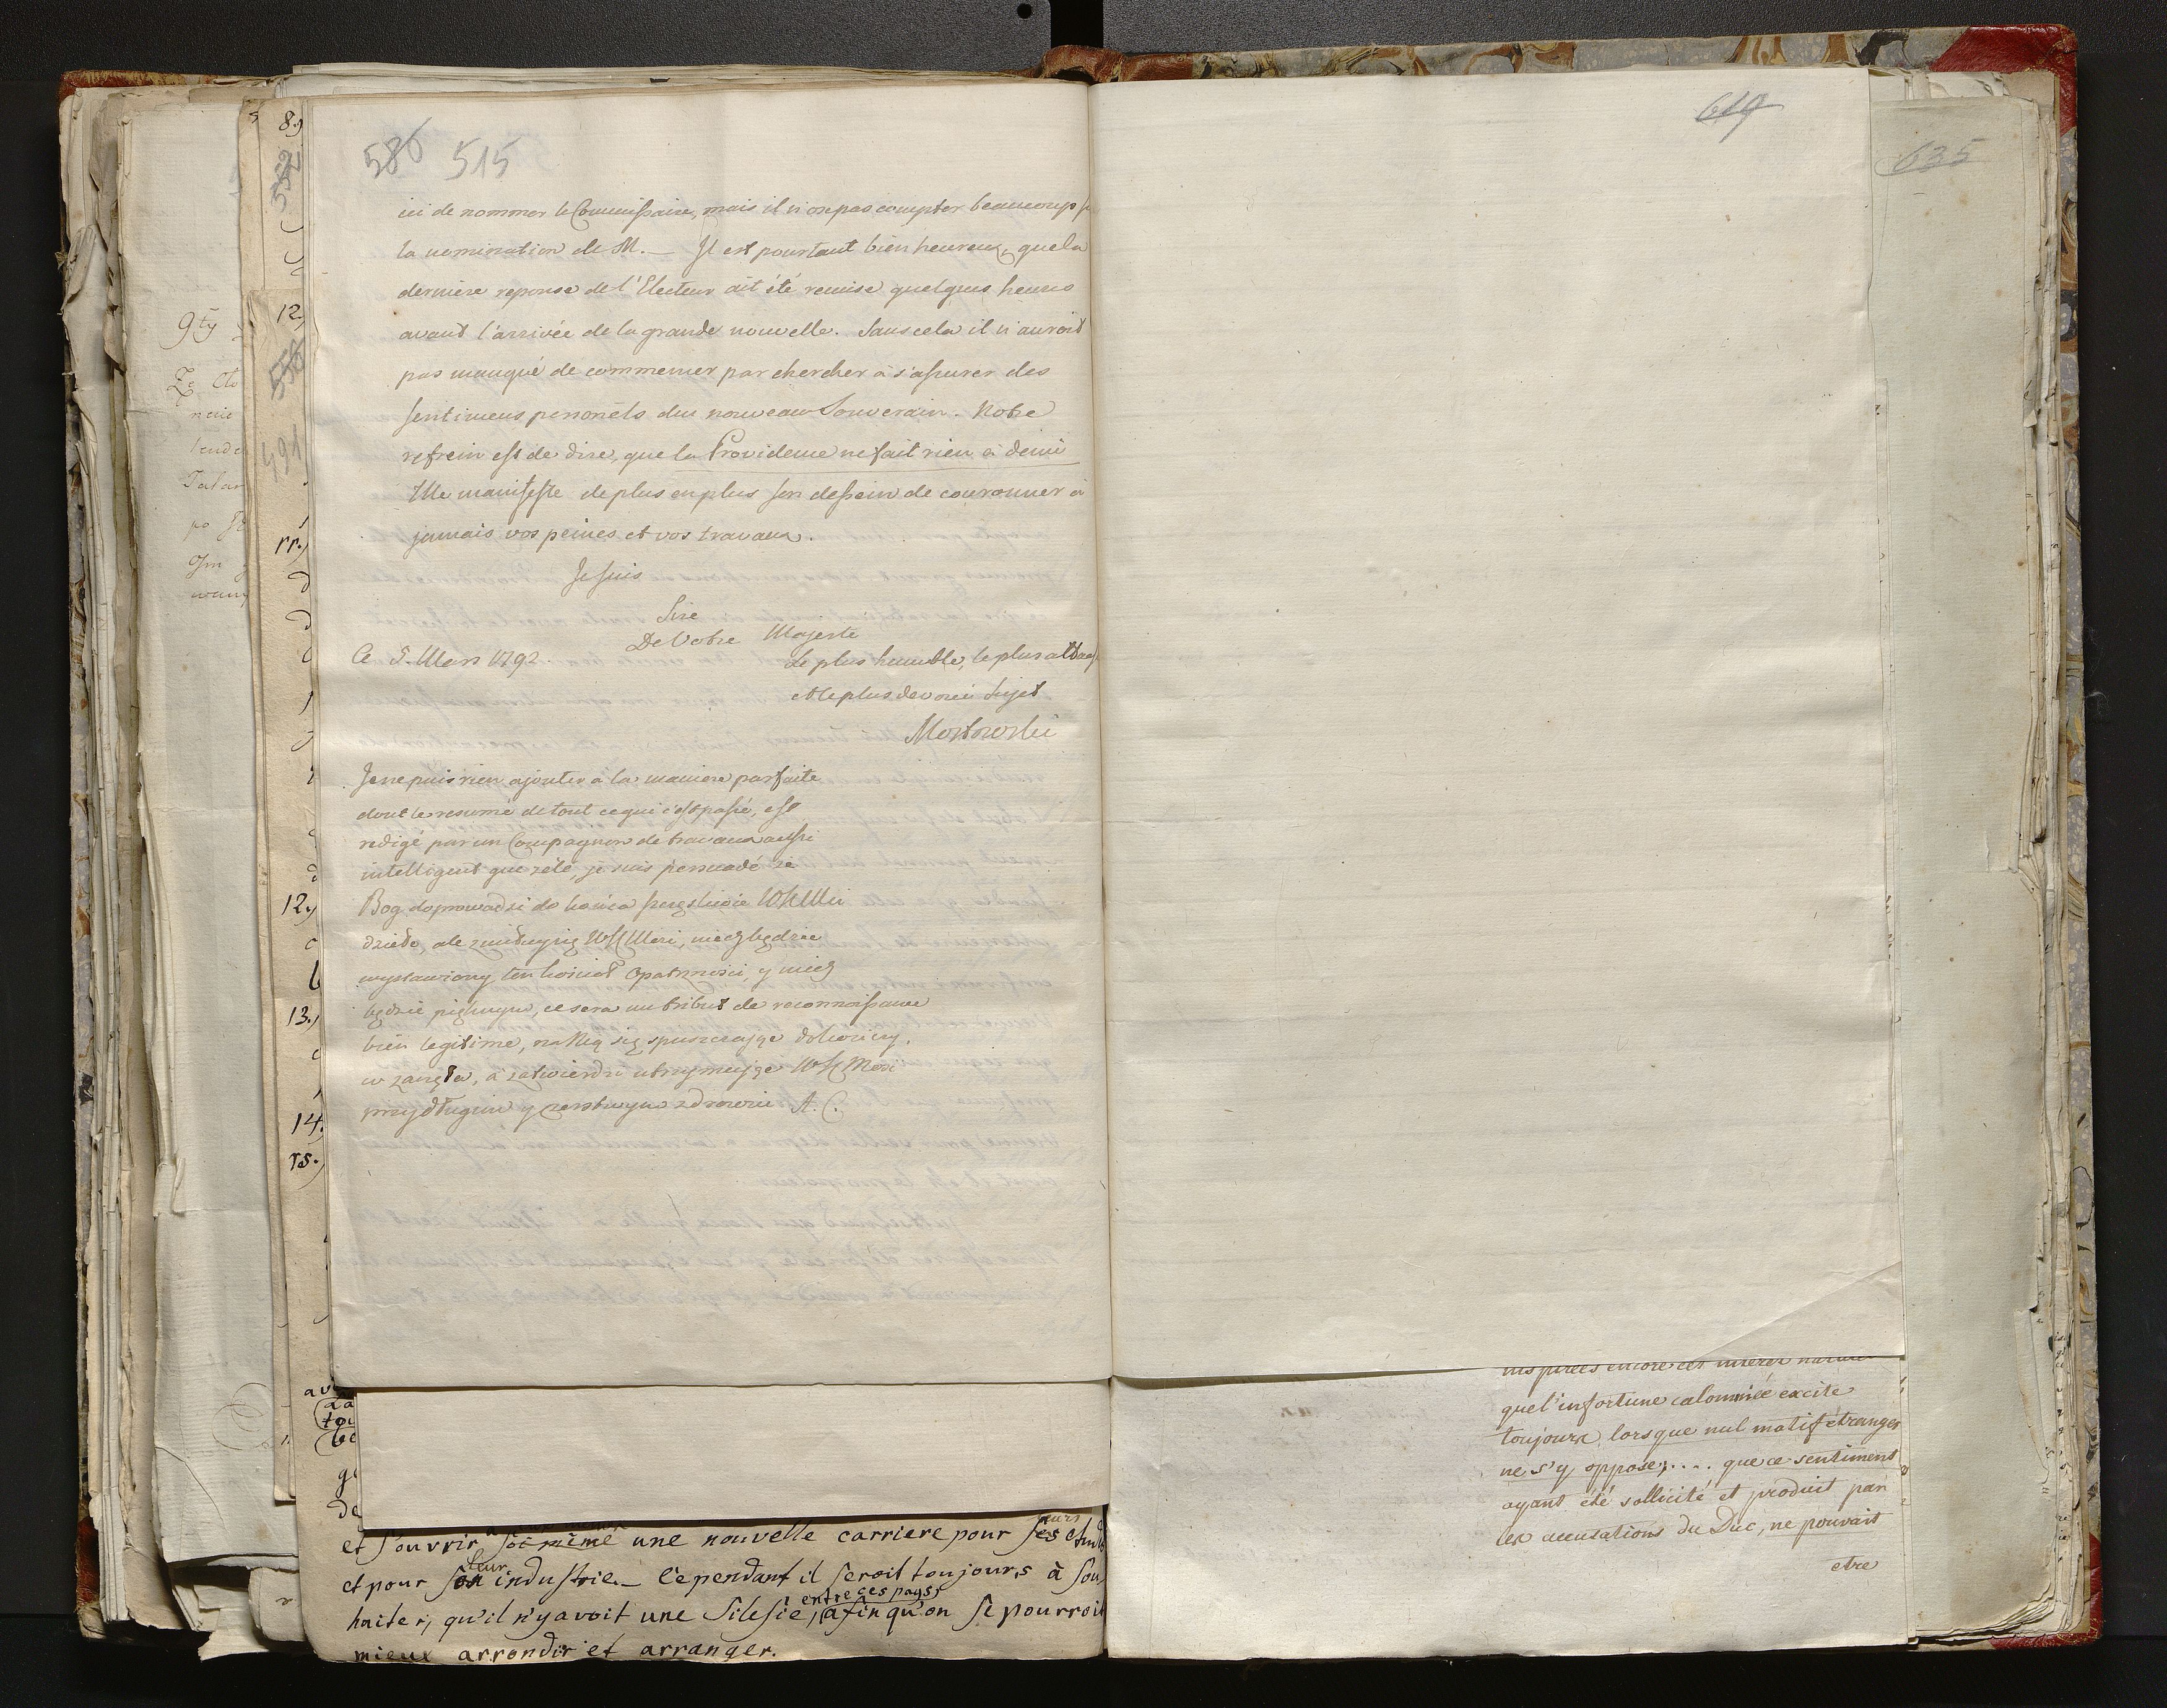 586 515
ici de nommer le Commissaire, mais il n'ose pas compter beaucoup
la nomination de M. — Il est pourtant bien heureux, que la
derniere reponse de l'Electeur ait été remise quelques heures
avant l'arrivée de la grande nouvelle. Sans cela il n'auroit
pas manqué de commencer par chercher à s'assurer des
sentimens personels du nouveau Souverain. Notre
refrein est de dire, que la Providence ne fait rien à demi
Elle manifeste de plus en plus son dessein de couronner à
jamais vos peines et vos travaux.
Je suis
Sire
De Votre Majesté
Ce 5. Mars 1792.
Le plus humble, le plus
et le plus devoué Sujet
Mostowski
Je ne puis rien ajouter à la maniere parfaite
dont le resumé de tout ce qui s'est passé, est
redigé par un Compagnon de travaux aussi
intelligent que zélé, je suis persuadé że
Bog doprowadzi do końca szczęśliwie WKMci
dzieło, ale zmiłuy się WKMci, niech będzie
wystawiony ten kościoł Opatrzności, y niech
będzie pięknym, ce sera un tribut de reconnoissance
bien legitime, na Nią się spuszczając dokończy,
co zaczęła, a zatwierdzi utrzymując WKMość
przy długim y czerstwym zdrowiu A. C.
et s'ouvrir soi même une nouvelle carriere pour ses
leurs
leur
et pour son industrie. — Cependant il seroit toujours à sou,
entre ces pays,
haiter, qu'il n'y avoit une Silesie, afin qu'on se pourroit
mieux arrondir et arranger.
8.)
552
12.)
558
491
11.)
12.)
13.)
14.)
15.)
9ty
619
635
que l'infortune calomniée excite
toujours lorsque nul motif étranger
ne s'y oppose; .... que ce sentiment
ayant été sollicité et produit par
les accusations du Duc, ne pouvait
etre